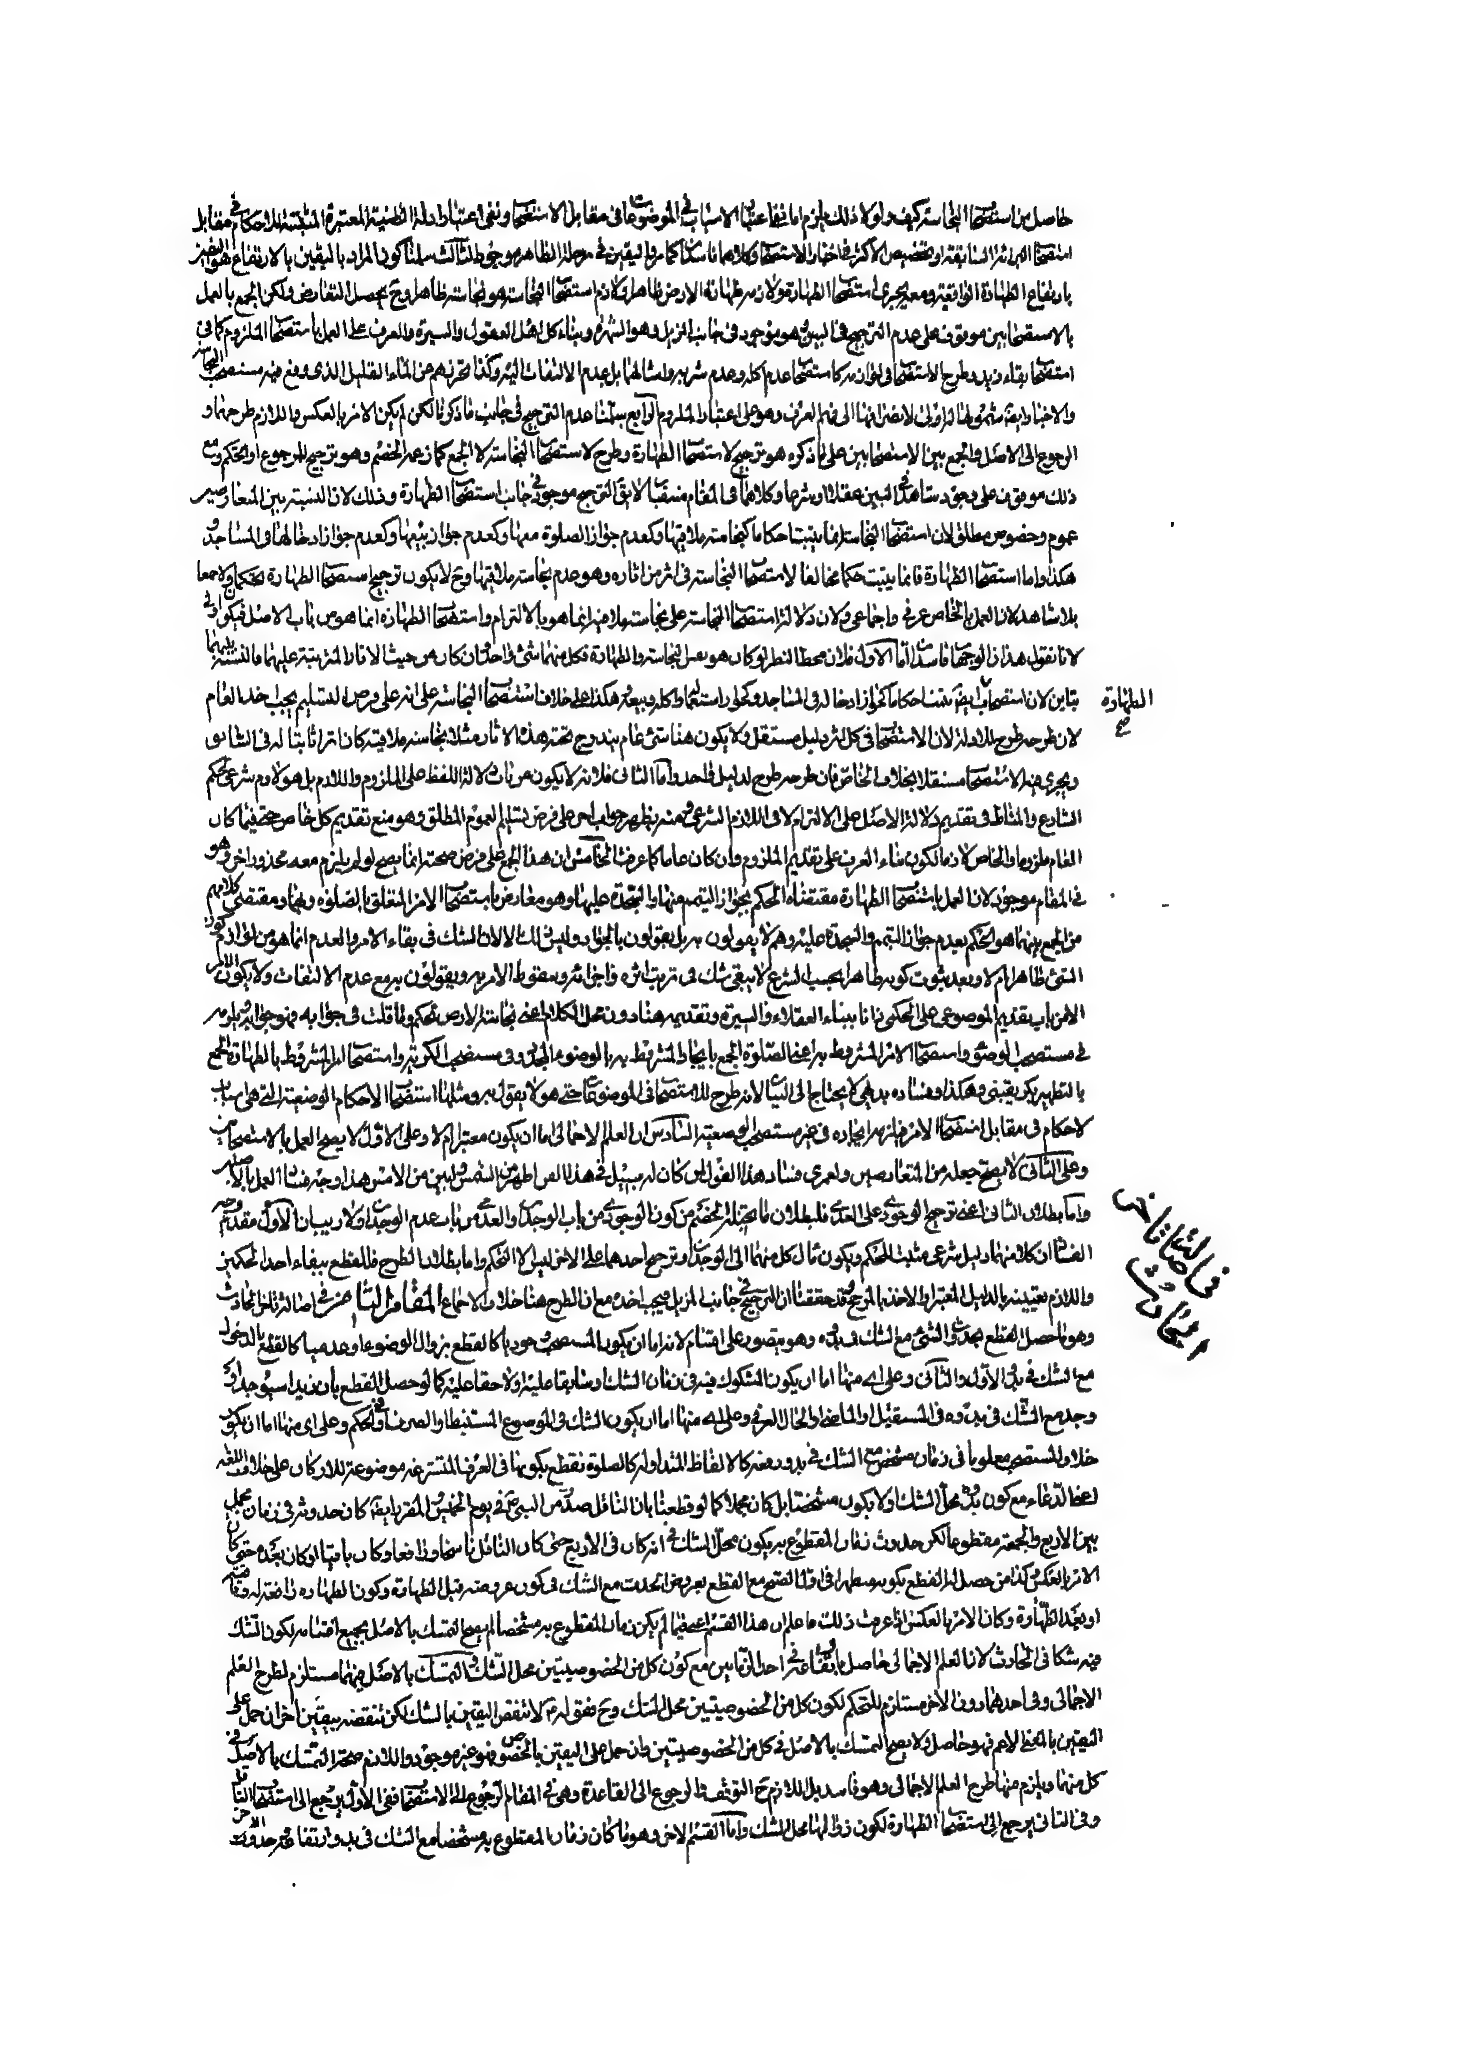 حاصل من استصحاب النجاسة كيف ولولا ذلك يلزم اما نفي اعتبار الاسباب في الموضوعات في مقابل الاستصحاب ونفي اعتبار ادلة الظنية المعتبرة المثبتة للاحكام في مقابل
استصحاب البرائة السابقة او تخصيص الاكثر في اخبار الاستصحاب وكلاهما فاسدان كما مر واليقين في مرحلة الظاهر موجود الثالث سلمنا كون المراد باليقين بالارتفاع هو اليقين
بارتفاع الطهارة الواقعية ومعه يجري استصحاب الطهارة ولازمه طهارة الارض ظاهرا ولازم استصحاب النجاسة هو نجاسته ظاهرا وح يحصل التعارض ولكن الجمع بالعمل
بالاستصحابين موقوف على عدم الترجيح في البين وهو موجود في جانب المزيل وهو الشهرة وبناء كل اهل العقول والسيرة والعرف على العمل باستصحاب الملزوم كما في
استصحاب بقاء زيد وطرح الاستصحاب في لوازمه كاستصحاب عدم اكله وعدم شربه وامثالهما بل عدم الالتفات اليه وكذا تحرزهم عن الماء القليل الذي وقع فيه مستصحب النجاسة
والاخبار ايضا شمولها لازلي لانصرافها الى فهم العرف وهو على اعتبار الملزوم الرابع سلمنا عدم الترجيح في جانب ما ذكرنا لكن لم يكن الامر بالعكس واللازم طرحهما و
الرجوع الى الاصل والجمع بين الاستصحابين على ما ذكره هو ترجيح لاستصحاب الطهارة وطرح لاستصحاب النجاسة لا الجمع كما زعمه الخصم وهو ترجيح المرجوع او التحكم ومع
ذلك موقوف على وجود شاهد في البين عقلا او شرعا وكلاهما في المقام منتفيان لا يقال الترجيح موجود في جانب استصحاب الطهارة وذلك لان النسبة بين المتعارضين
عموم وخصوص مطلق لان استصحاب النجاسة انما يثبت احكاما كنجاسة ملاقيها وكعدم جواز الصلوة معها وكعدم جواز بيعها وكعدم جواز ادخالها في المساجد و
هكذا واما استصحاب الطهارة فانما يثبت حكما مخالفا لاستصحاب النجاسة في اثر من اثاره وهو عدم نجاسة ملاقيها وح لا يكون ترجيح استصحاب الطهارة تحكما ولا جمعا
بلا شاهد لان العمل بالخاص عرفي واجماعي ولان دلالة استصحاب النجاسة على نجاسة ملاقيه انما هو بالالتزام واستصحاب الطهارة انما هو من باب الاصل فيكون اولى
لانا نقول هذان الوجهان فاسدان اما الاول فلان محط النظر لو كان هو نفس النجاسة والطهارة فكل منهما شيء واحد وان كان من حيث الاثار المترتبة عليهما فالنسبة بينهما
تباين لان استصحاب الطهارة ايضا يثبت احكاما كجواز ادخاله في المساجد وكجواز استعماله واكله وبيعه وهكذا على خلاف استصحاب النجاسة على انه على فرض التسليم يجب اخذ العام
لان طرحه طرح للادلة لان الاستصحاب في كل اثر دليل مستقل ولا يكون هنا شيء عام يندرج تحته هذه الاثار مثلا نجاسة ملاقيه كان اثرا ثابتا له في السابق
ويجري فيه الاستصحاب مستقلا بخلاف الخاص فان طرحه طرح لدليل واحد واما الثاني فلانه لا يكون من باب دلالة اللفظ على الملزوم واللازم بل هو لازم شرعي بحكم
الشارع والمناط في تقديم دلالة الاصل على الالتزام لا في اللازم الشرعي ومنه يظهر جواب اخر على فرض تسليم العموم المطلق وهو منع تقديم كل خاص حتى فيما كان
العام ملزوما والخاص لازما لكون بناء العرف على تقديم الملزوم وان كان عاما كما عرفت الخامس ان هذا الجمع على فرض صحته انما يصح لو لم يلزم معه محذور اخر وهو
في المقام موجود لان العمل باستصحاب الطهارة مقتضاه الحكم بجواز التيمم منها والسجدة عليها وهو معارض باستصحاب الامر المتعلق بالصلوة وبهما ومقتضى كلامهم
من الجمع بينهما هو الحكم بعدم جواز التيمم والسجدة عليه وهم لا يقولون به بل يقولون بالجواز وليس ذلك الا لان الشك في بقاء الامر والعدم انما هو من لوازم كون
الشيء طاهرا ام لا وبعد ثبوت كونه طاهرا بحسب الشرع لا يبقى شك في ترتب اثره واجزائه وسقوط الامر به ويقولون به مع عدم الالتفات ولا يكون ذلك
الا من باب تقديم الموضوعي على الحكمي فانا ببناء العقلاء والسيرة وتقديمه هنا دون محل الكلام اعني نجاسة الارض تحكم وما قلت في جوابه فهو جوابنا ويلزمه
في مستصحب الوضوء واستصحاب الامر المشروط به اعني الصلوة الجمع بايجاد المشروط به بالوضوء المجدد وفي مستصحب الكرية واستصحاب الامر المشروط بالطهارة الجمع
بالتطهير بكر يقيني وهكذا وفساده بديهي لا يحتاج الى البيان لانه طرح للاستصحاب في الموضوعات حتى هو لا يقول به ومثلها استصحاب الاحكام الوضعية التي هي اسباب
لاحكام في مقابل استصحاب الامر فيلزمه ايجاده في غير مستصحب الوضعية السادس ان العلم الاجمالي اما ان يكون معتبرا ام لا وعلى الاول لا يصح العمل بالاستصحابين
وعلى الثاني لا يصح جعله من المتعارضين ولعمري فساد هذا القول وان كان له سبيل في هذا العصر اظهر من الشمس وابين من الامس هذا وجه فساد العمل بالاصلين
واما بطلان الثاني اعني ترجيح الوجودي على العدمي فلبطلان ما تخيله الخصم من كون الوجودي من باب الوجدان والعدمي من باب عدم الوجدان ولا ريب ان الاول مقدم وجه
الفساد ان كلا منهما دليل شرعي مثبت للحكم ويكون مآل كل منهما الى الوجدان وترجيح احدهما على الاخر ليس الا التحكم واما بطلان الطرح فللقطع ببقاء احد الحكمين
واللازم تعيينه بالدليل المعتبر او الاخذ بالمرجح وقد حققنا ان الترجيح في جانب المزيل فيجب اخذه مع ان الطرح هنا خلاف الاجماع المقام الثامن في اصالة تاخر الحادث
وهو ما حصل القطع بحدوث الشيء مع الشك في بدوه وهو يتصور على اقسام لانه اما ان يكون المستصحب وجوديا كالقطع بزوال الوضوء او عدميا كالقطع بالدخول
مع الشك في بدو الاول والثاني وعلى اي منها اما ان يكون المشكوك فيه في زمان الشك او سابقا عليه ولاحقا عليه كما لو حصل القطع بان زيدا سيوجد او
وجد مع الشك في بدوه في المستقبل او الماضي او الحال العرفي وعلى اي منها اما ان يكون الشك في الموضوع المستنبط او الصرف او في الحكم وعلى اي منها اما ان يكون
خلاف المستصحب معلوما في زمان مشخص مع الشك في بدو رفعه كالالفاظ المتداولة كالصلوة نقطع بكونها في العرف المتشرعة موضوعة للاركان على خلاف اللغة
اعني الدعاء مع كون بدوه محل الشك او لا يكون مشخصا بل كان مجملا كما لو قطعنا بان الناقل صدر من النبي ص في يوم الخميس المقر ايضا كان حدوثه في زمان مجمل
بين الاربع والجمعة مقطوعا لكن حدوث زمان المقطوع به يكون محل الشك في انه كان في الاربع حتى كان الناقل ناسخا ورافعا وكان باقيا او كان بعده حتى كان
الامر بالعكس وكذا من حصل له القطع بكونه متطهرا في اول الصبح مع القطع بعروض الحدث مع الشك في كون عروضه قبل الطهارة وكون الطهارة رافعة له وباقية
او بعد الطهارة وكان الامر بالعكس اذا عرفت ذلك فاعلم ان هذا القسم اعني ما لم يكن زمان المقطوع به مشخصا لم يصح التمسك بالاصل بجميع اقسامه لكون الشك
فيه شكا في الحادث لان العلم الاجمالي حاصل بارتفاعه في احد الزمانين مع كون كل من الخصوصيتين محل الشك والتمسك بالاصل فيهما مستلزم لطرح العلم
الاجمالي وفي احدهما دون الاخر مستلزم للتحكم لكون كل من الخصوصيتين محل الشك وح فقوله ع لا تنقض اليقين بالشك لكن تنقضه بيقين اخر ان حمل على
اليقين بالمعنى الاعم فهو حاصل ولا يصح التمسك بالاصل في كل من الخصوصيتين وان حمل على اليقين بالخصوص فهو غير موجود واللازم صحة التمسك بالاصل في
كل منهما ويلزم منها طرح العلم الاجمالي وهو فاسد بل اللازم ح التوقف والرجوع الى القاعدة وهي في المقام الرجوع الى الاستصحاب ففي الاول يرجع الى استصحاب
وفي الثاني يرجع الى استصحاب الطهارة لكون زوالها محل الشك واما القسم الاخر وهو ما كان زمان المقطوع به مشخصا مع الشك في بدو ارتفاعه حدوث
الطهارة صح
في اصالة تاخر
الحادث